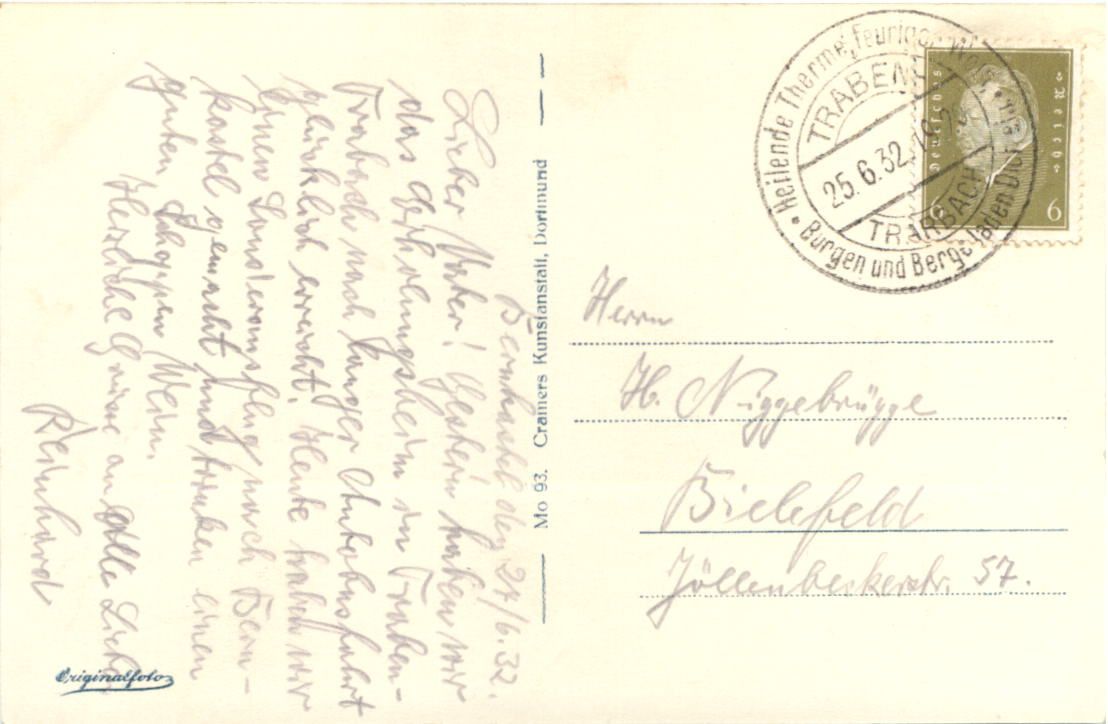 Bernkastel den 24/6.32.
Lieber Vater! Gestern haben wir
das Erholungsheim in Traben-
Trarbach nach langer Autobusfahrt
glücklich erreicht. Heute haben wir
einen Sonderausflug nach Bern-
kastel gemacht und trinken einen
guten Schoppen Wein.
Herzliche Grüsse an alle Lieben
Reinhard
Originalfoto
Mo 93. Cramers Kunstanstalt, Dortmund
Heilende Therme, feuriger Wein,
Burgen und Berge laden Dich ein
TRABEN
25.6.32.
TRARBACH
Deutsches Reich
6 6
Herrn
H. Niggebrügge
Bielefeld
Jöllenbeckerstr. 57.